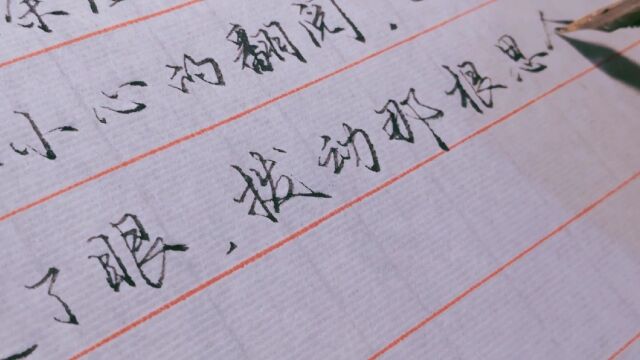 小心的翻阅,
了眼,拨动那根思